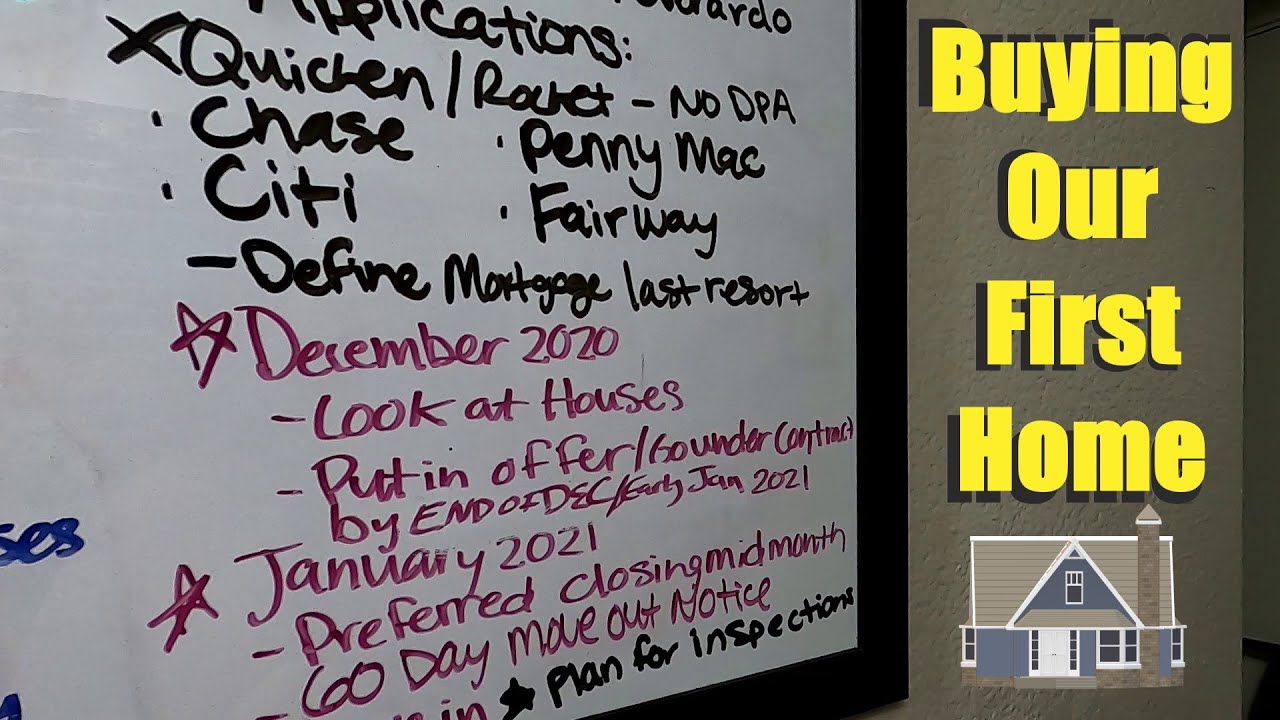 Applications:
X Quicken/Rocket - NO DPA
· Chase · Penny Mac
· Citi · Fairway
- Define Mortgage last resort
☆ December 2020
- Look at Houses
- Put in offer/Go under Contract
by END OF DEC/Early Jan 2021
☆ January 2021
- Preferred closing mid month
- 60 Day Move out Notice
★ Plan for inspections
Buying
Our
First
Home